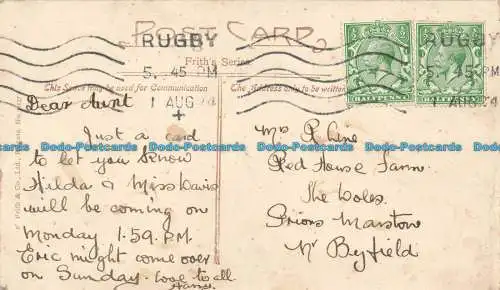 POST CARD
RUGBY
5. 45 PM
1 AUG
Frith's Series.
This Space may be used for Communication
The Address only to be written
RUGBY
5. 45 PM
AUG 24
HALFPENNY
HALFPENNY
Dear Aunt
Just a card
to let you know
Hilda & Miss Davis
will be coming on
Monday 1.59. P.M.
Eric might come over
on Sunday. Love to all
Mrs R Cline
Red House Farm
The Doles.
Priors Marston
Nr Byfield
Dodo-Postcards Dodo-Postcards Dodo-Postcards Dodo-Postcards
Dodo-Postcards Dodo-Postcards Dodo-Postcards Dodo-Postcards